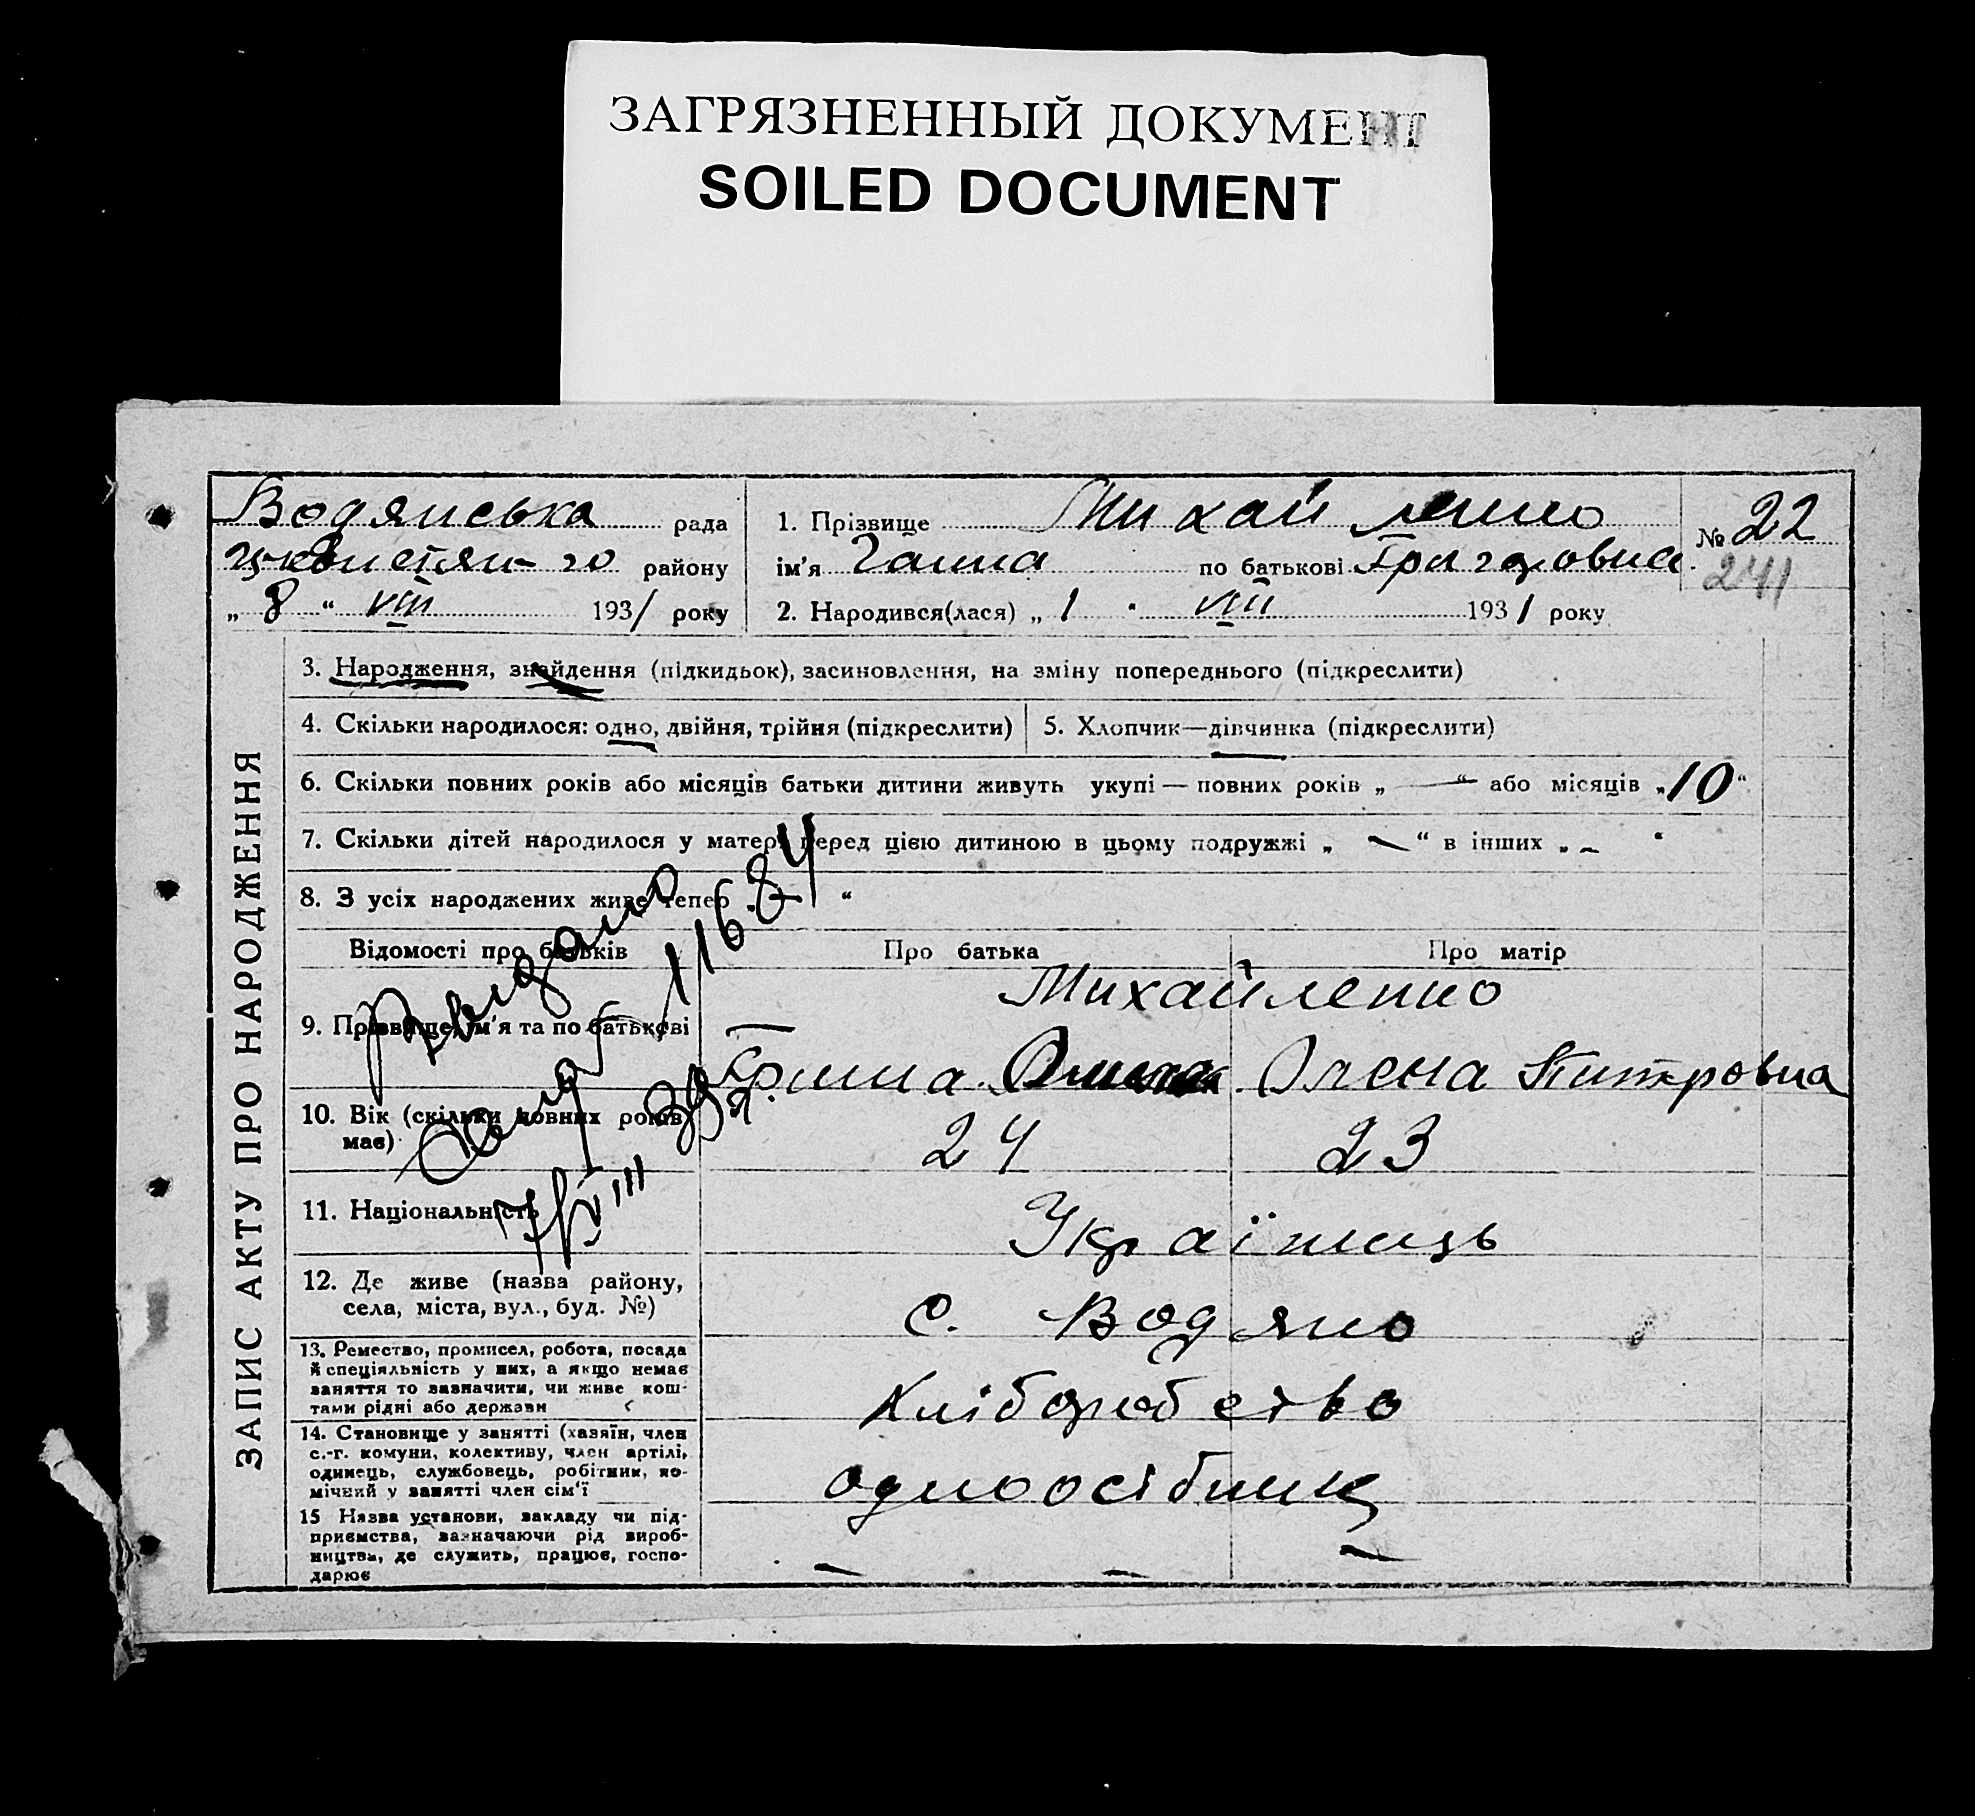 ЗАГРЯЗНЕННЫЙ ДОКУМЕНТ
SOILED DOCUMENT
Водянська рада
району
„ 8 “ VIII 1931 року
1. Прізвище Михайленко
ім'я Ганна по батькові Григоровна
2. Народився(лася) „ 1 “ VIII 1931 року
№ 22
241
ЗАПИС АКТУ ПРО НАРОДЖЕННЯ
3. Народження, знайдення (підкидьок), засиновлення, на зміну попереднього (підкреслити)
4. Скільки народилося: одно, двійня, трійня (підкреслити)
5. Хлопчик—дівчинка (підкреслити)
6. Скільки повних років або місяців батьки дитини живуть укупі — повних років „ — “ або місяців „10“
7. Скільки дітей народилося у матері перед цією дитиною в цьому подружжі „ — “ в інших „ – “
8. З усіх народжених живе тепер „ — “
Відомості про батьків Про батька Про матір
Михайленко
9. Прізвище, ім'я та по батькові
Гриша Олена Питровна
10. Вік (скільки повних років
має)
24 23
11. Національність Українець
12. Де живе (назва району,
села, міста, вул., буд. №)
с. Водяно
13. Ремество, промисел, робота, посада
й спеціяльність у них, а якщо немає
заняття то зазначити, чи живе кош-
тами рідні або держави
Хліборобство
14. Становище у занятті (хазяїн, член
с.-г. комуни, колективу, член артілі,
одинець, службовець, робітник, по-
мічний у занятті член сім'ї
одноосібник
15 Назва установи, закладу чи під-
приємства, зазначаючи рід вироб-
ництва, де служить, працює, госпо-
дарює
— — —
11684